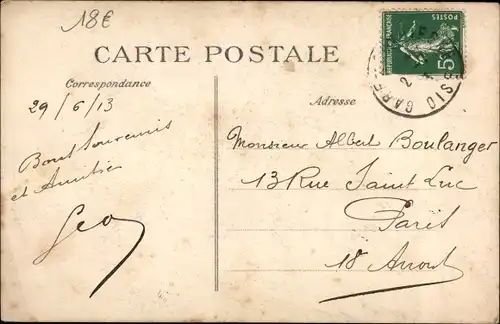 18€
CARTE POSTALE
Correspondance
Adresse
RÉPUBLIQUE FRANÇAISE
POSTES
5c
29/6/13
Bons Souvenirs
et Amitiés
Geo
Monsieur Albert Boulanger
13 Rue Saint Luc
Paris
18 Arront